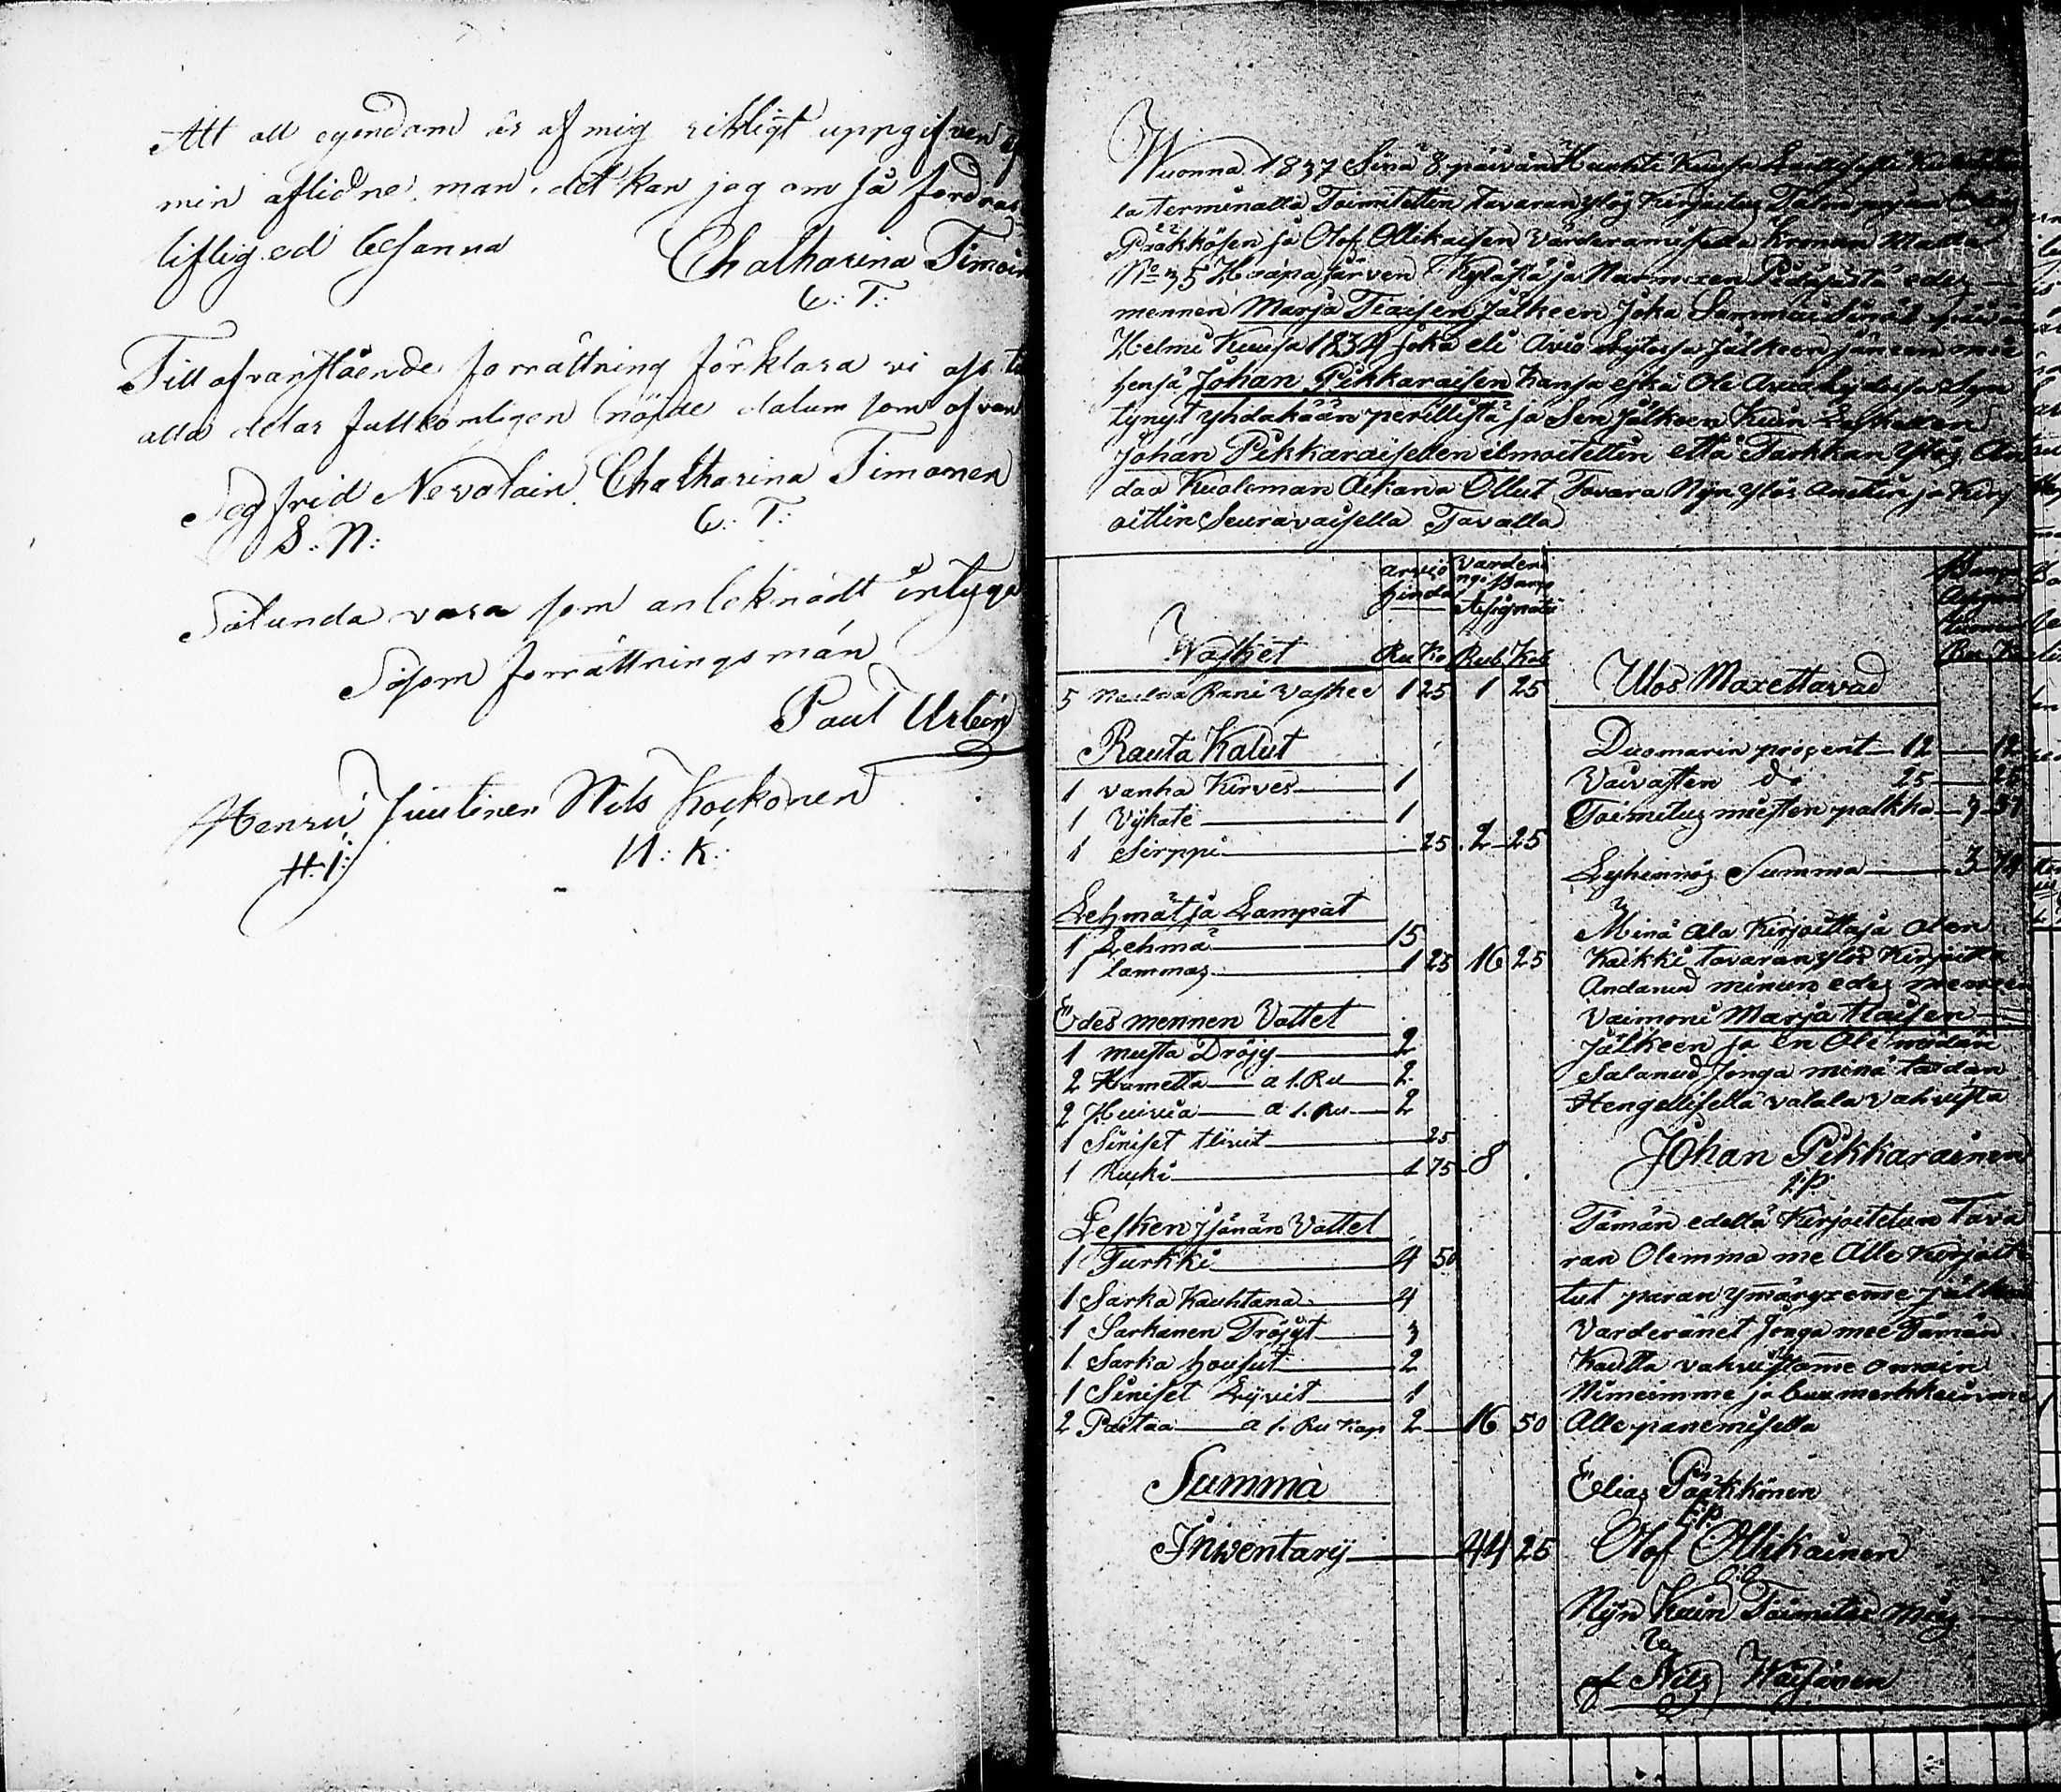 Att all egendom är af mig riktligt uppgifven
min aflidne man, det kan jag om så fordras
liflig ed besanna
Chatharina Timoin
C: T:
Till ofvanstående forrättning förklara vi oss
alla delar fullkomligen nöjde datum som ofvan
Segfrid Nevalain Chatharina Timonen
S: N: C: T:
Sålunda vara som anteknadt intyga
Såsom forrättningsmän
Paul Urbin
Henric Juutinen Nils Kockonen
H: J: N: K:
Wuonna 1837 Sinä 8 päivänä Huhti Kuusa
la terminalla Toimitettin tavaran ylös Kirjoitus
Pääkkösen ja Olof Ollikaisen Värderamisesta Kronun Maalla
No 35 Haapajärven Kyläsä ja Nurmexen Pitäjästä edes
mennen Marja Tiaisen Jälkeen Joka
Helmi Kuusa 1834 joka eli Avio
hensä Johan Pikkaraisen Kansa eikä Ole
tynyt yhdakään perillistä ja Sen Jälkeen Kuin Leskellen
Johan Pikkaraisellen ilmoitettin että Tarkkan Ylös An
daa Kuoleman Aikana Ollut Tavara Nijn Ylös Anettin ja Kirj
oittin Seuravaisella Tavalla
arvio hinda
Värderi ngi Assignati
Wasket Ru Ko Rub Kob
5 Rani Vaskee 1 25 1 25
Rauta Kalut
1 vanha Kirves 1
1 Vijkate 1
1 Sirppi 25 2 25
Lehmät ja Lampat
1 Lehmä 15
1 lammas 1 25 16 25
Edes mennen Vattet
1 musta Dröjy 2
2 Hametta a 1. Ru 2
2 Huivia a 1. Ru 2
1 Siniset tlivit 25
1 Rucki 1 75 8
Lesken jsänän Vattet
1 Turkki 4 50
1 Sarka Kauhtana 4
1 Sarkanen Tröijyt 3
1 Sarka housut 2
1 Siniset Lijvit 1
2 Paitaa a 1. Ru Kap 2 16 50
Summa
Inwentarij 44 25
Ulos Maxettavad
Duomarin prosent 12 12
Vaivasten do 25 25
Toimitus miesten palkka 3 37
Lyhennös Summa 3 74
Minä ala Kirjoittaja olen
Kaikki tavaran ylös Kirjoitta
Andanud minun edes mennen
Vaimoni Marja tiaisen
Jälkeen ja en Ole mitään
Salanud Jonga minä taidan
Hengellisellä valala vahvista
Johan Pikkarainen
J:P
Tämän edellä Kirjoitetun Tava
ran Olemma me Alle Kirjoite
tut paran ymäryxeme jälken
Varderänet Jonga mee Tämän
Kautta vahvistame omain
Nimeimme ja bumerkkeinme
Alle panemisella
Elias Pääkkönen
E:P
Olof Ollikainen
O:O
Nijn Kuin Toimitus Mies
Nils Wäisänen